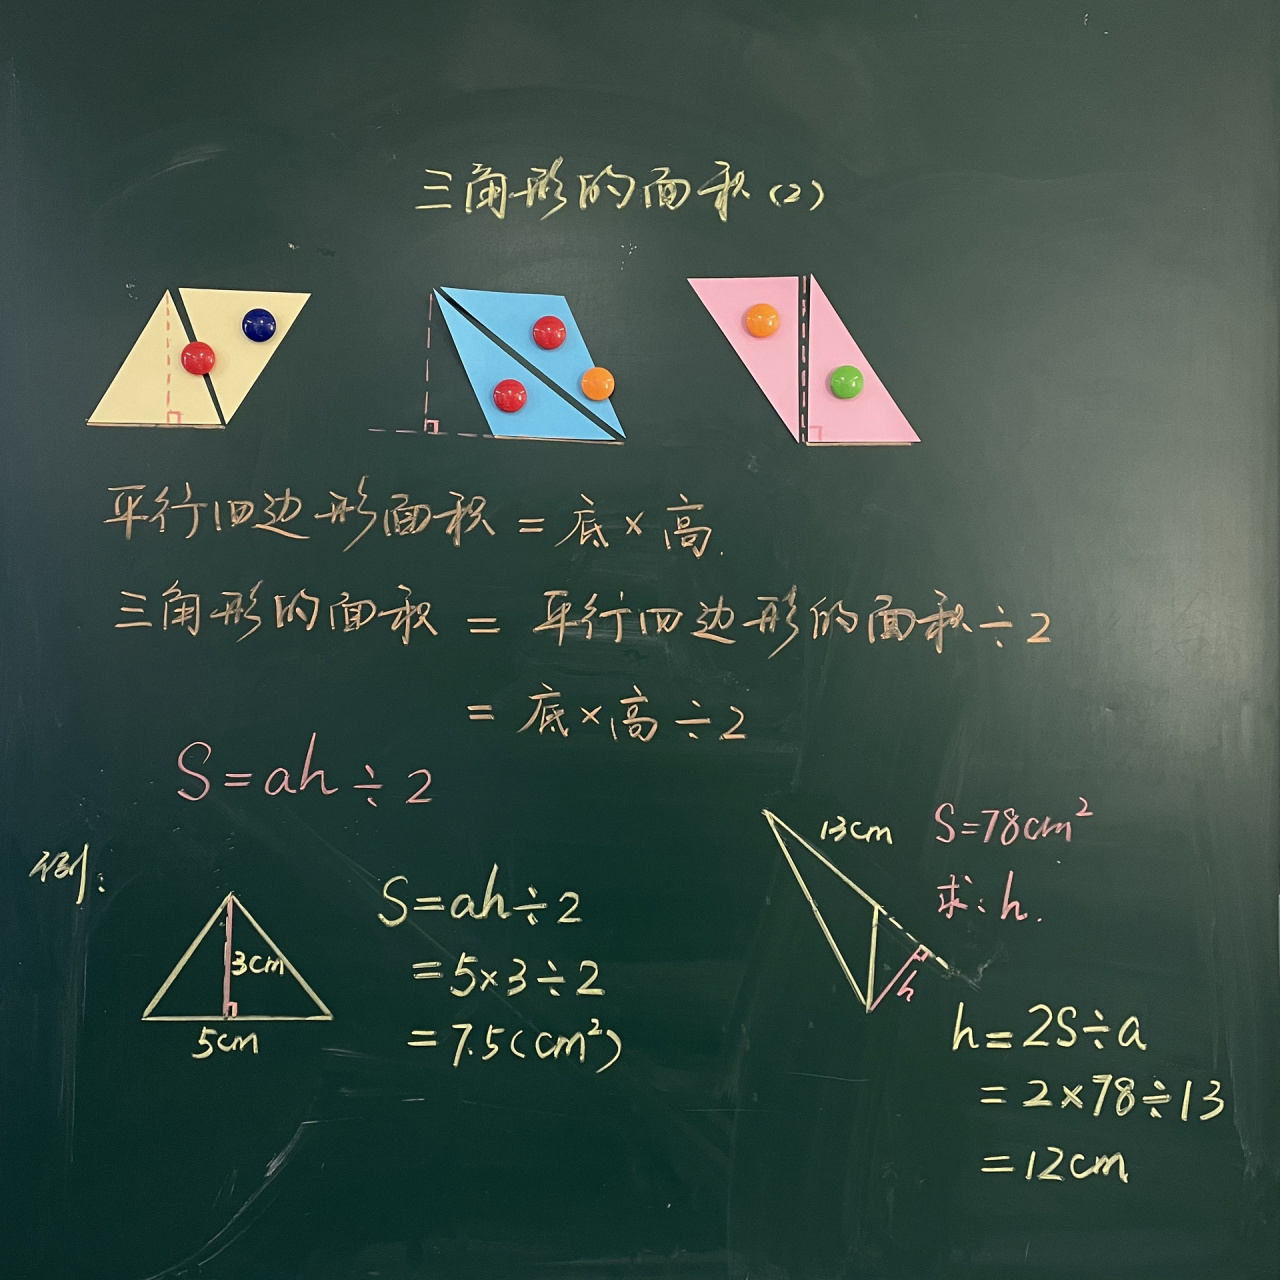 三角形的面积(2)
平行四边形面积=底×高.
三角形的面积=平行四边形的面积÷2
=底×高÷2
S=ah÷2
例:
3cm
5cm
S=ah÷2
=5×3÷2
=7.5(cm²)
13cm
h
S=78cm²
求:h.
h=2S÷a
=2×78÷13
=12cm